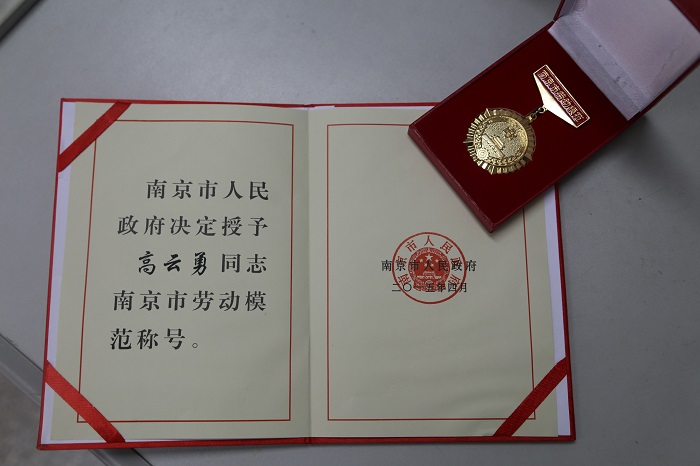 南京市人民
政府决定授予
高云勇同志
南京市劳动模
范称号。
南京市人民政府
二〇一五年四月
南京市人民政府
南京市劳动模范